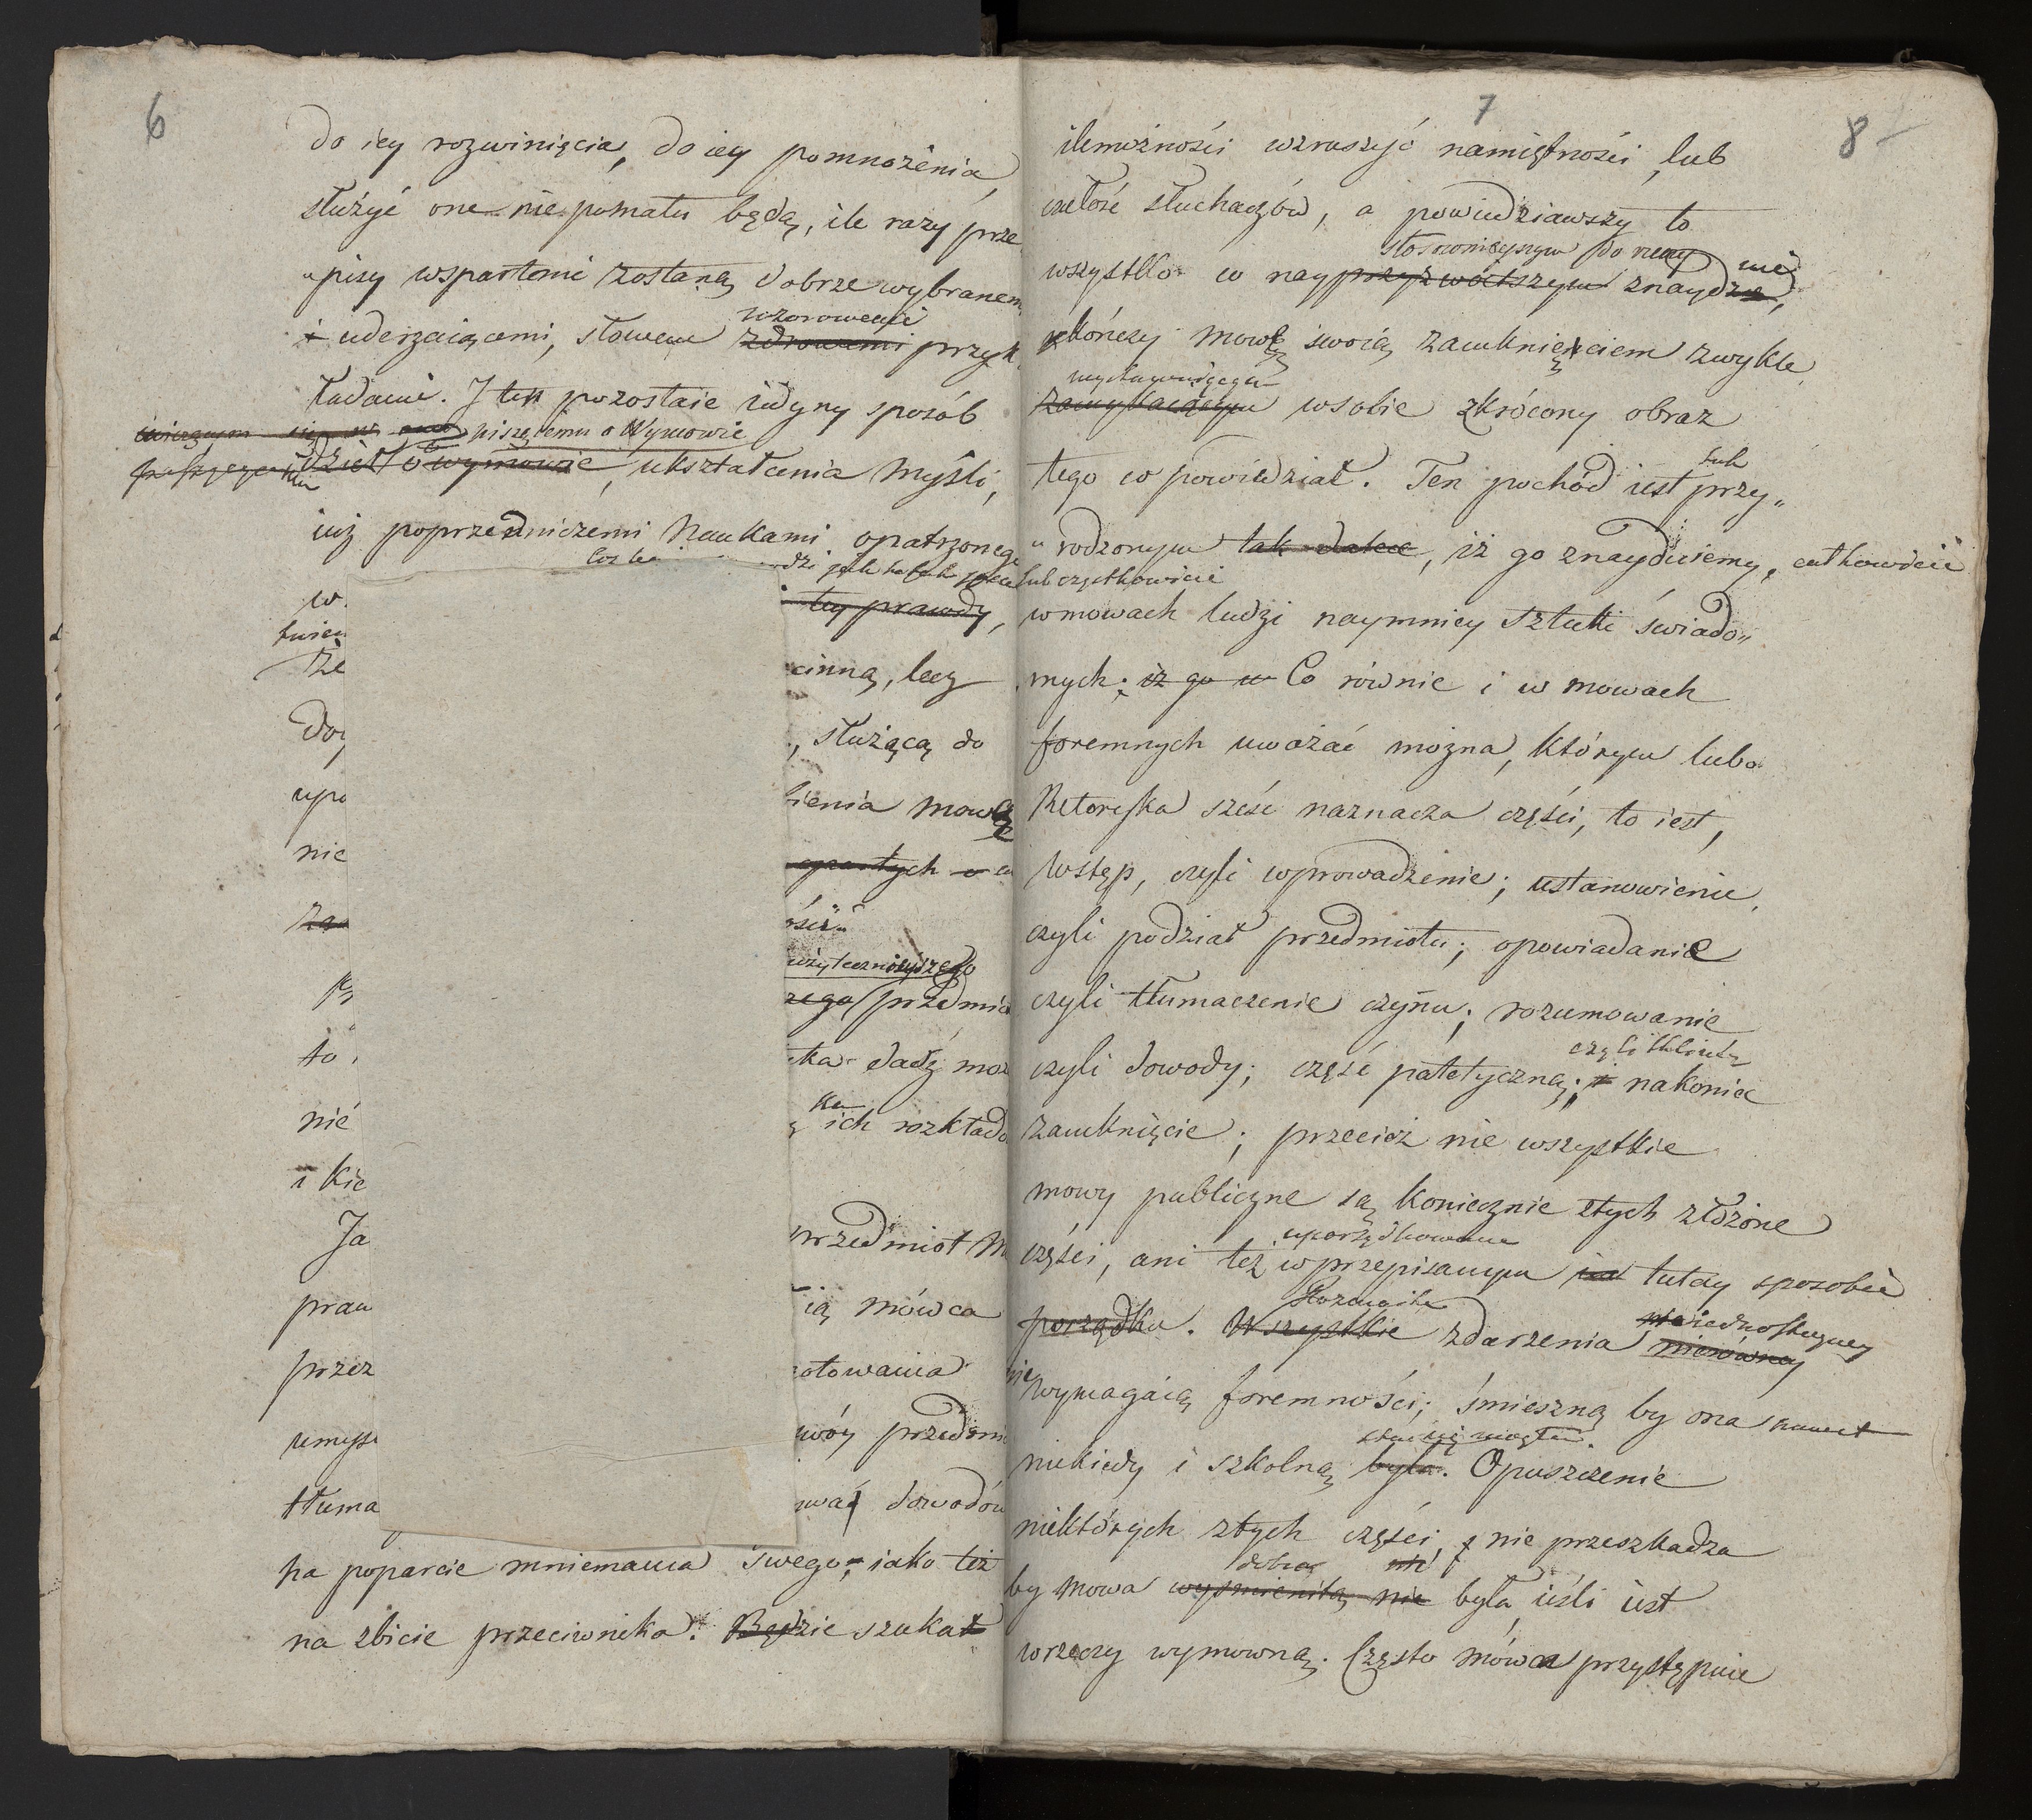 6
do iey rozwinięcia, do iey pomnożenia,
służyć one nie pomału będą, ile razy prze
"pisy wspartemi zostaną dobrze wybranem
wzorowemi
i uderzaiącemi, słowem zdrowemi przyk
ładami. I ten pozostaie iedyny sposób
piszącemu o Wymowie
dzieło o wymowie, ukształcenia myśli,
iuż poprzedniczemi Naukami opatrzonego
w
tey prawdy,
że
cinną, lecz
do
, służącą do
upo
bienia mowę
nie
opartych
za
ości
użytecznieyszego
zego przedmio
to
ka dadź moż
nié
ich rozkłado
i kie
Ja
przedmiot M
praw
ią mówca
przez
otowania
umys
wóy przedmi
tłuma
wać dowodów
na poparcie mniemania swego; iako też
na zbicie przeciwnika. Będzie szukał
7
8
ilemożności wzruszyć namiętności, lub
czułość słuchaczów, a powiedziawszy to
stosownieyszym do rzeczy
wszystko co nayprzyzwoitszym znaydzie,
kończy mowę swoią zamknięciem zwykle
zamykaiącym wsobie zkrócony obraz
tego co powiedział. Ten pochód iest przy„
"rodzonym tak dalece, iż go znayduiemy, całkowicie
lub cząstkowicie
w mowach ludzi naymniey sztuki świado„
mych; iż go w Co równie i w mowach
foremnych uważać można, którym lubo
Retoryka sześć naznacza części, to iest,
Wstęp, czyli wprowadzenie; ustanowienie,
czyli podział przedmiotu; opowiadanie
czyli tłumaczenie czynu; rozumowanie
czyli dowody; część patetyczną; i nakoniec
zamknięcie; przecież nie wszystkie
mowy publiczne są koniecznie ztych złożone
uporządkowane
części, ani też w przepisanym tutay sposobie
Rozmaite
porządku. Wszystkie zdarzenia nierówney
iednostayney
wymagaią foremności; śmieszną by ona nawet
stać się mogła.
niekiedy i szkolną była. Opuszczenie
niektórych ztych części, nie przeszkadza
dobrą
by mowa wyśmienitą nie była, ieśli iest
w rzeczy wymowną. Często mówca przystępuie